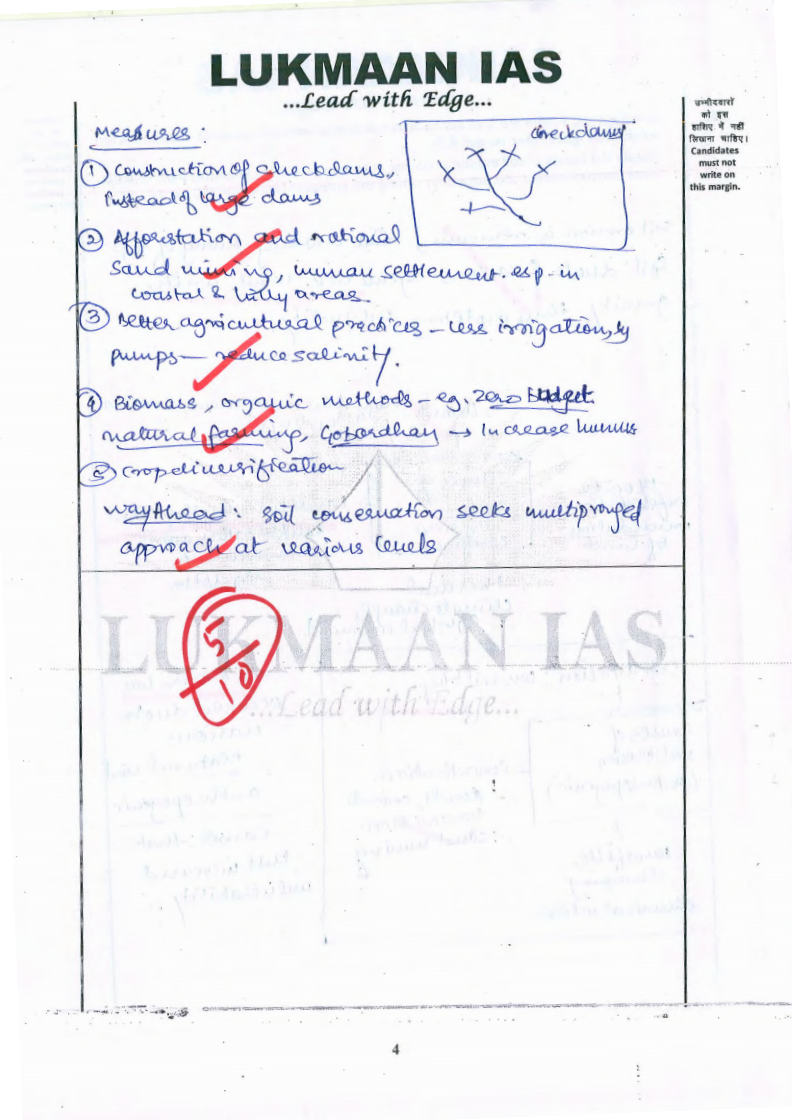 LUKMAAN IAS
...Lead with Edge...
उम्मीदवारों
को इस
हाशिए में नहीं
लिखना चाहिए।
Candidates
must not
write on
this margin.
Measures :
checkdams
① Construction of checkdams,
instead of large dams
② Afforestation and rational
sand mining, human settlement. esp. in
coastal & hilly areas.
③ Better agricultural practices – less irrigation by
pumps — reduce salinity.
④ Biomass, organic methods – eg. Zero Budget
natural farming, Gobardhan → Increase humus
⑤ Crop diversification
Way Ahead : Soil conservation seeks multipronged
approach at various levels
5/10
LUKMAAN IAS
...Lead with Edge...
4